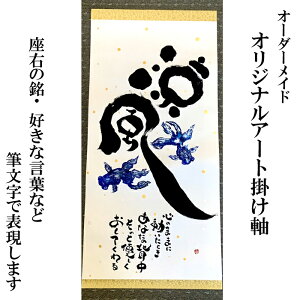 オーダーメイド
オリジナルアート掛け軸
涼風
心のままに
動いたら
あなたの背中
そっと優しく
おしてくれる
座右の銘・好きな言葉など
筆文字で表現します